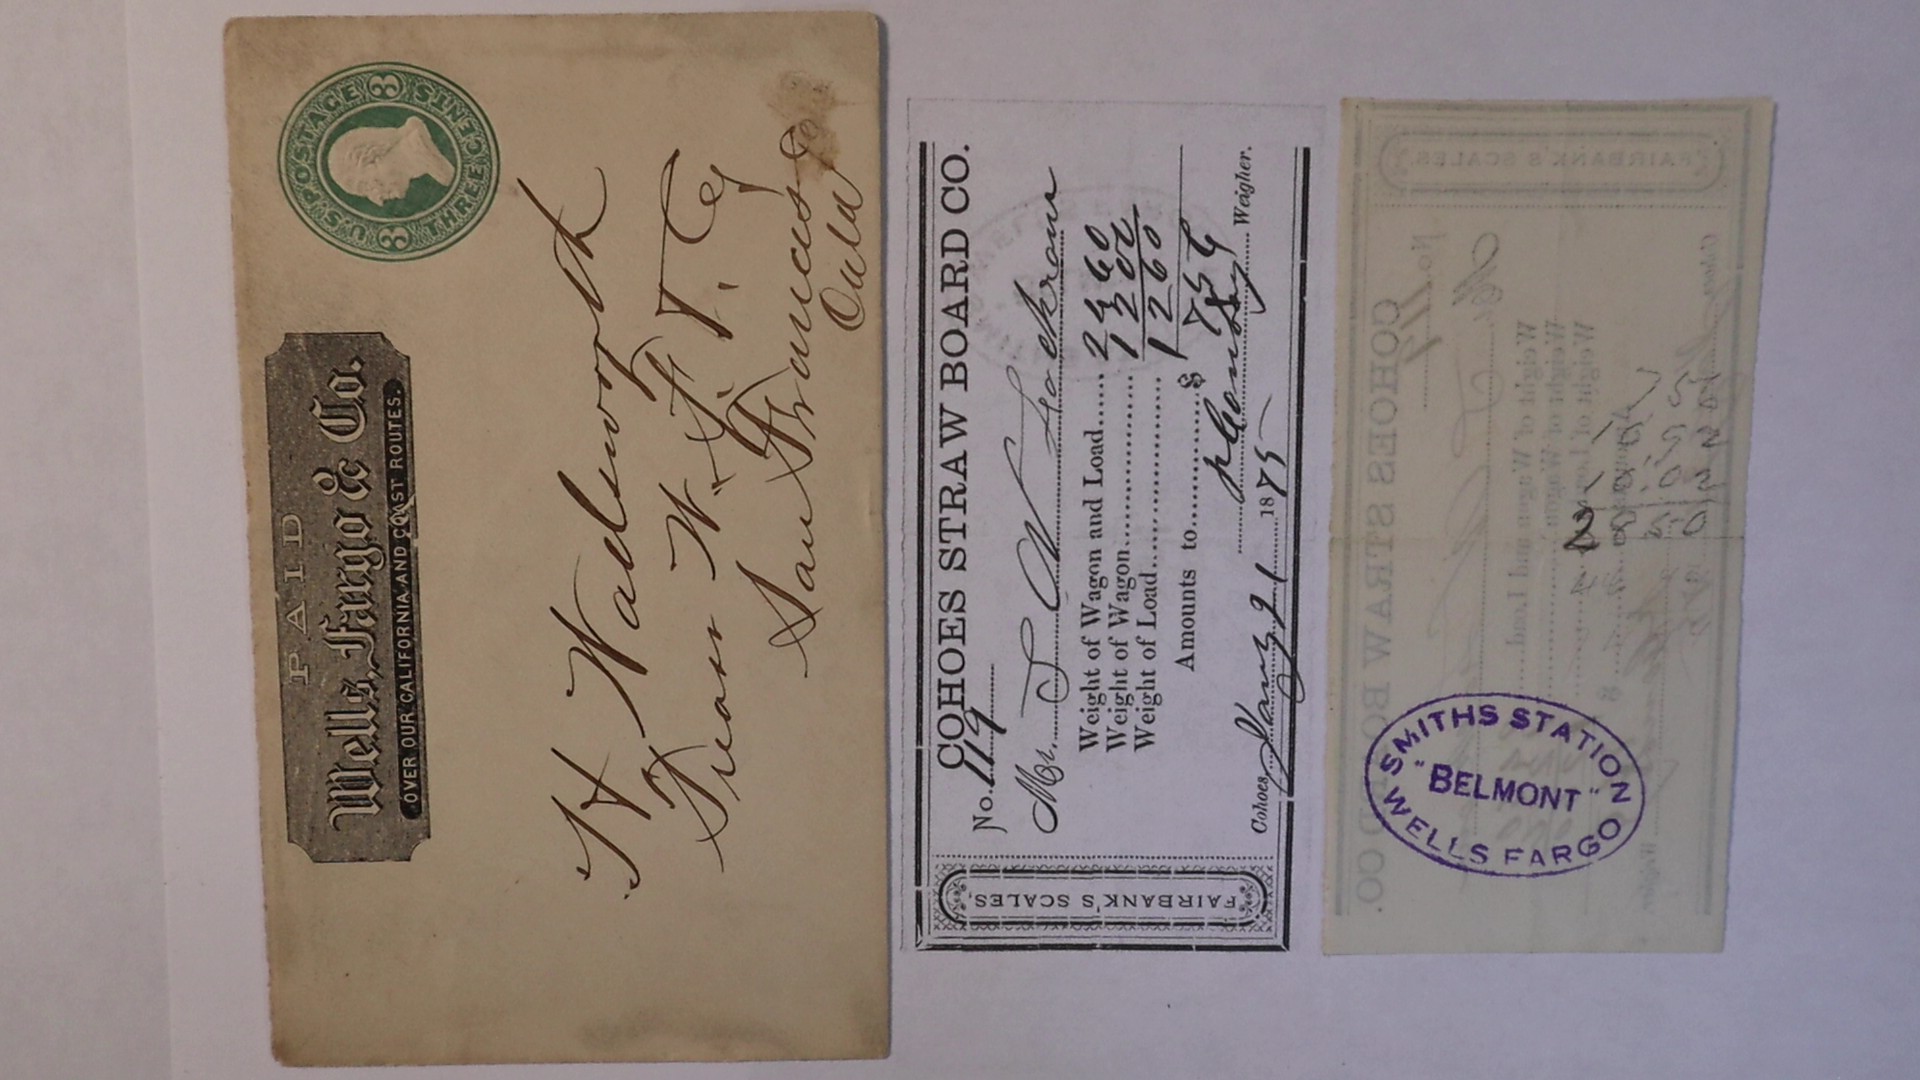 U.S. POSTAGE
THREE CENTS
3 3
PAID
Wells, Fargo & Co.
OVER OUR CALIFORNIA AND COAST ROUTES.
H Wadsworth
Treasr W. F. & Co
San Francisco
COHOES STRAW BOARD CO.
No. 119
Mr.
Weight of Wagon and Load 2460
Weight of Wagon 1202
Weight of Load 1260
Amounts to $ 756
Weigher.
Cohoes 1875
FAIRBANK'S SCALES.
FAIRBANK'S SCALES.
No. 119
COHOES STRAW BOARD CO.
Weight of Wagon and Load
Weight of Wagon
Weight of Load
2850
SMITHS STATION
"BELMONT"
WELLS FARGO